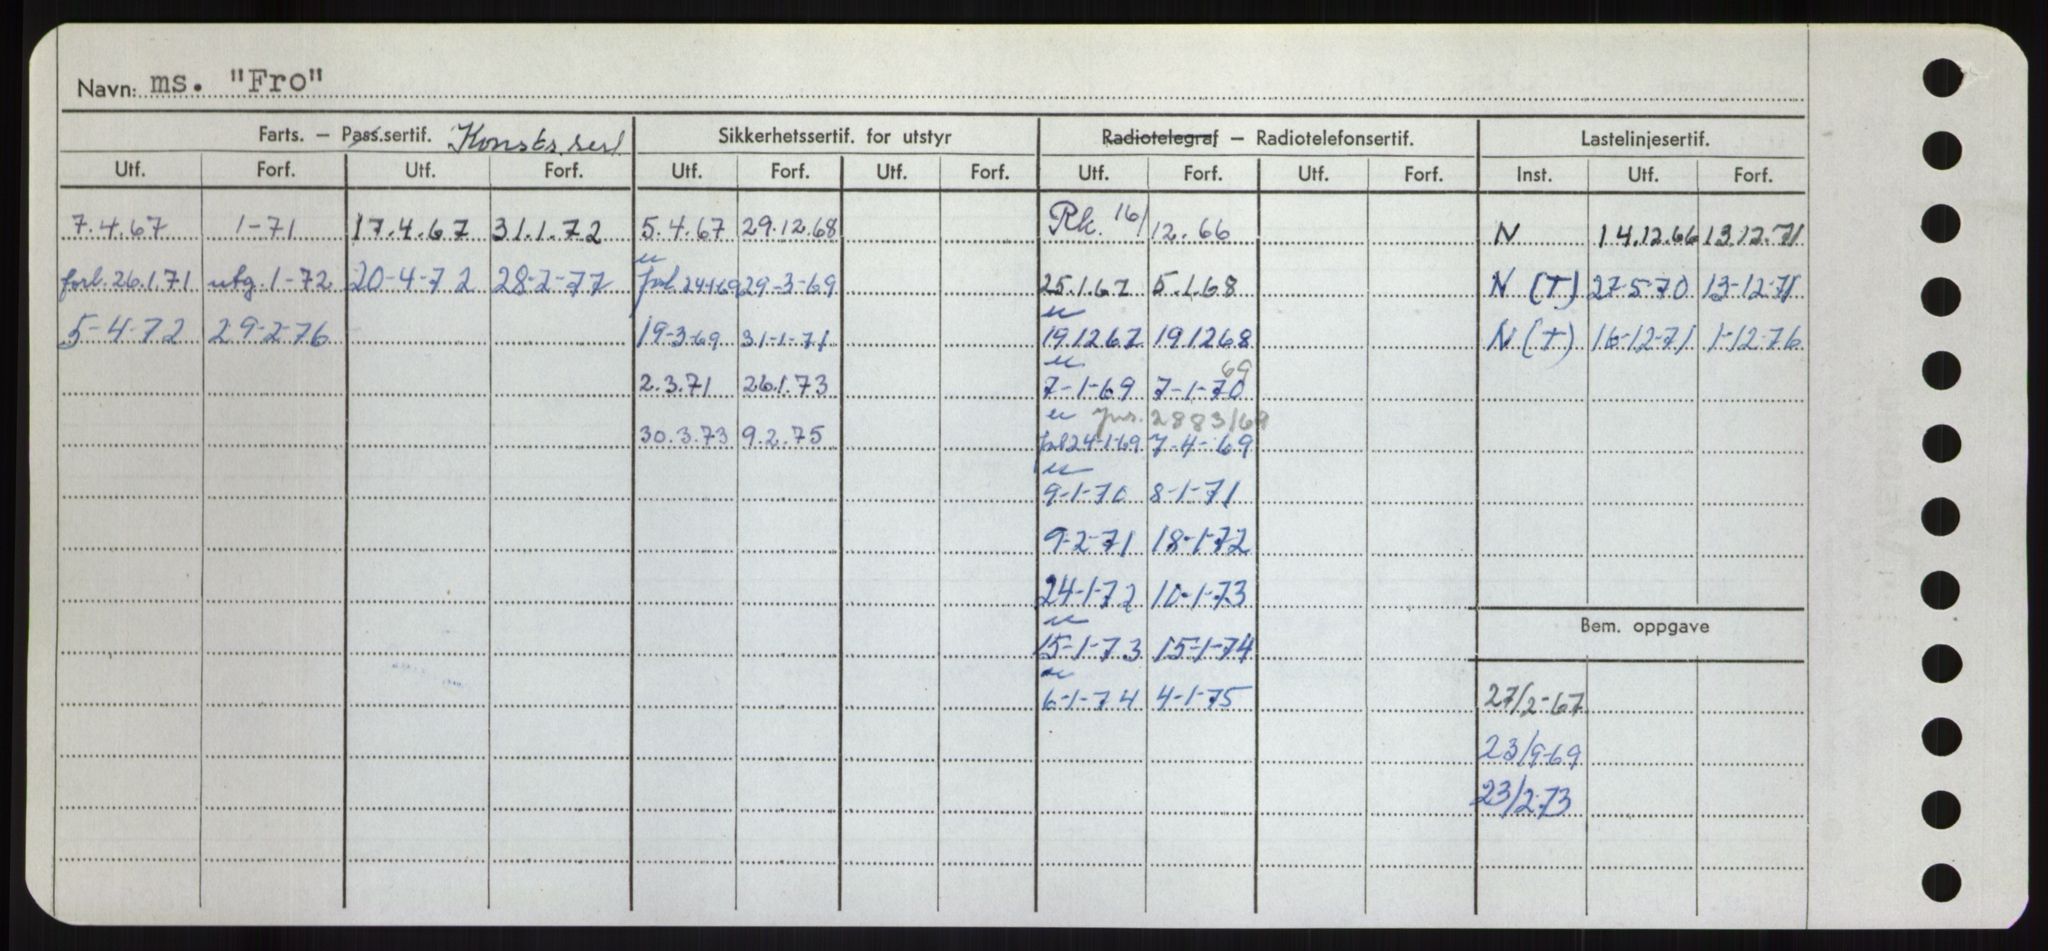 Navn: ms. "Fro"
Farts. – Pass.sertif. Konstr. sert Sikkerhetssertif. for utstyr Radiotelegraf – Radiotelefonsertif. Lastelinjesertif.
Utf. Forf. Utf. Forf. Utf. Forf. Utf. Forf. Utf. Forf. Utf. Forf. Inst. Utf. Forf.
7.4.67 1-71 17.4.67 31.1.72 5.4.67 29.12.68 Rk. 16/12.66 N 14.12.66 13.12.71
forl. 26.1.71 utg. 1-72 20-4-72 28-2-77 forl 24-1-69 29-3-69 25.1.67 5.1.68 N (T) 27-5-70 13-12-71
5-4-72 29-2-76 19-3-69 31-1-71 19.12 67 19.12 68 N (T) 16-12-71 1-12-76
69
2.3.71 26.1.73 7-1-69 7-1-70
jnr. 2883/69
30.3.73 9.2.75 forl 24-1-69 7-4-69
9-1-70 8-1-71
9-2-71 18-1-72
24-1-72 10-1-73
Bem. oppgave
15-1-73 15-1-74
6-1-74 4-1-75 27/2-67
23/9-69
23/2.73